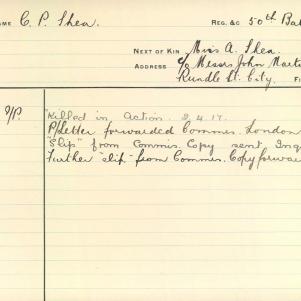 NAME C. P. Shea. REG. &C 50th Bat
NEXT OF KIN Miss A. Shea.
ADDRESS c/o Messrs John Mart
Rundle St. City.
"Killed in Action. 2.4.17.
P/Letter forwarded Commis. London
"Slip" from Commis. Copy sent Inq
Further "slip" from Commis. Copy forwar